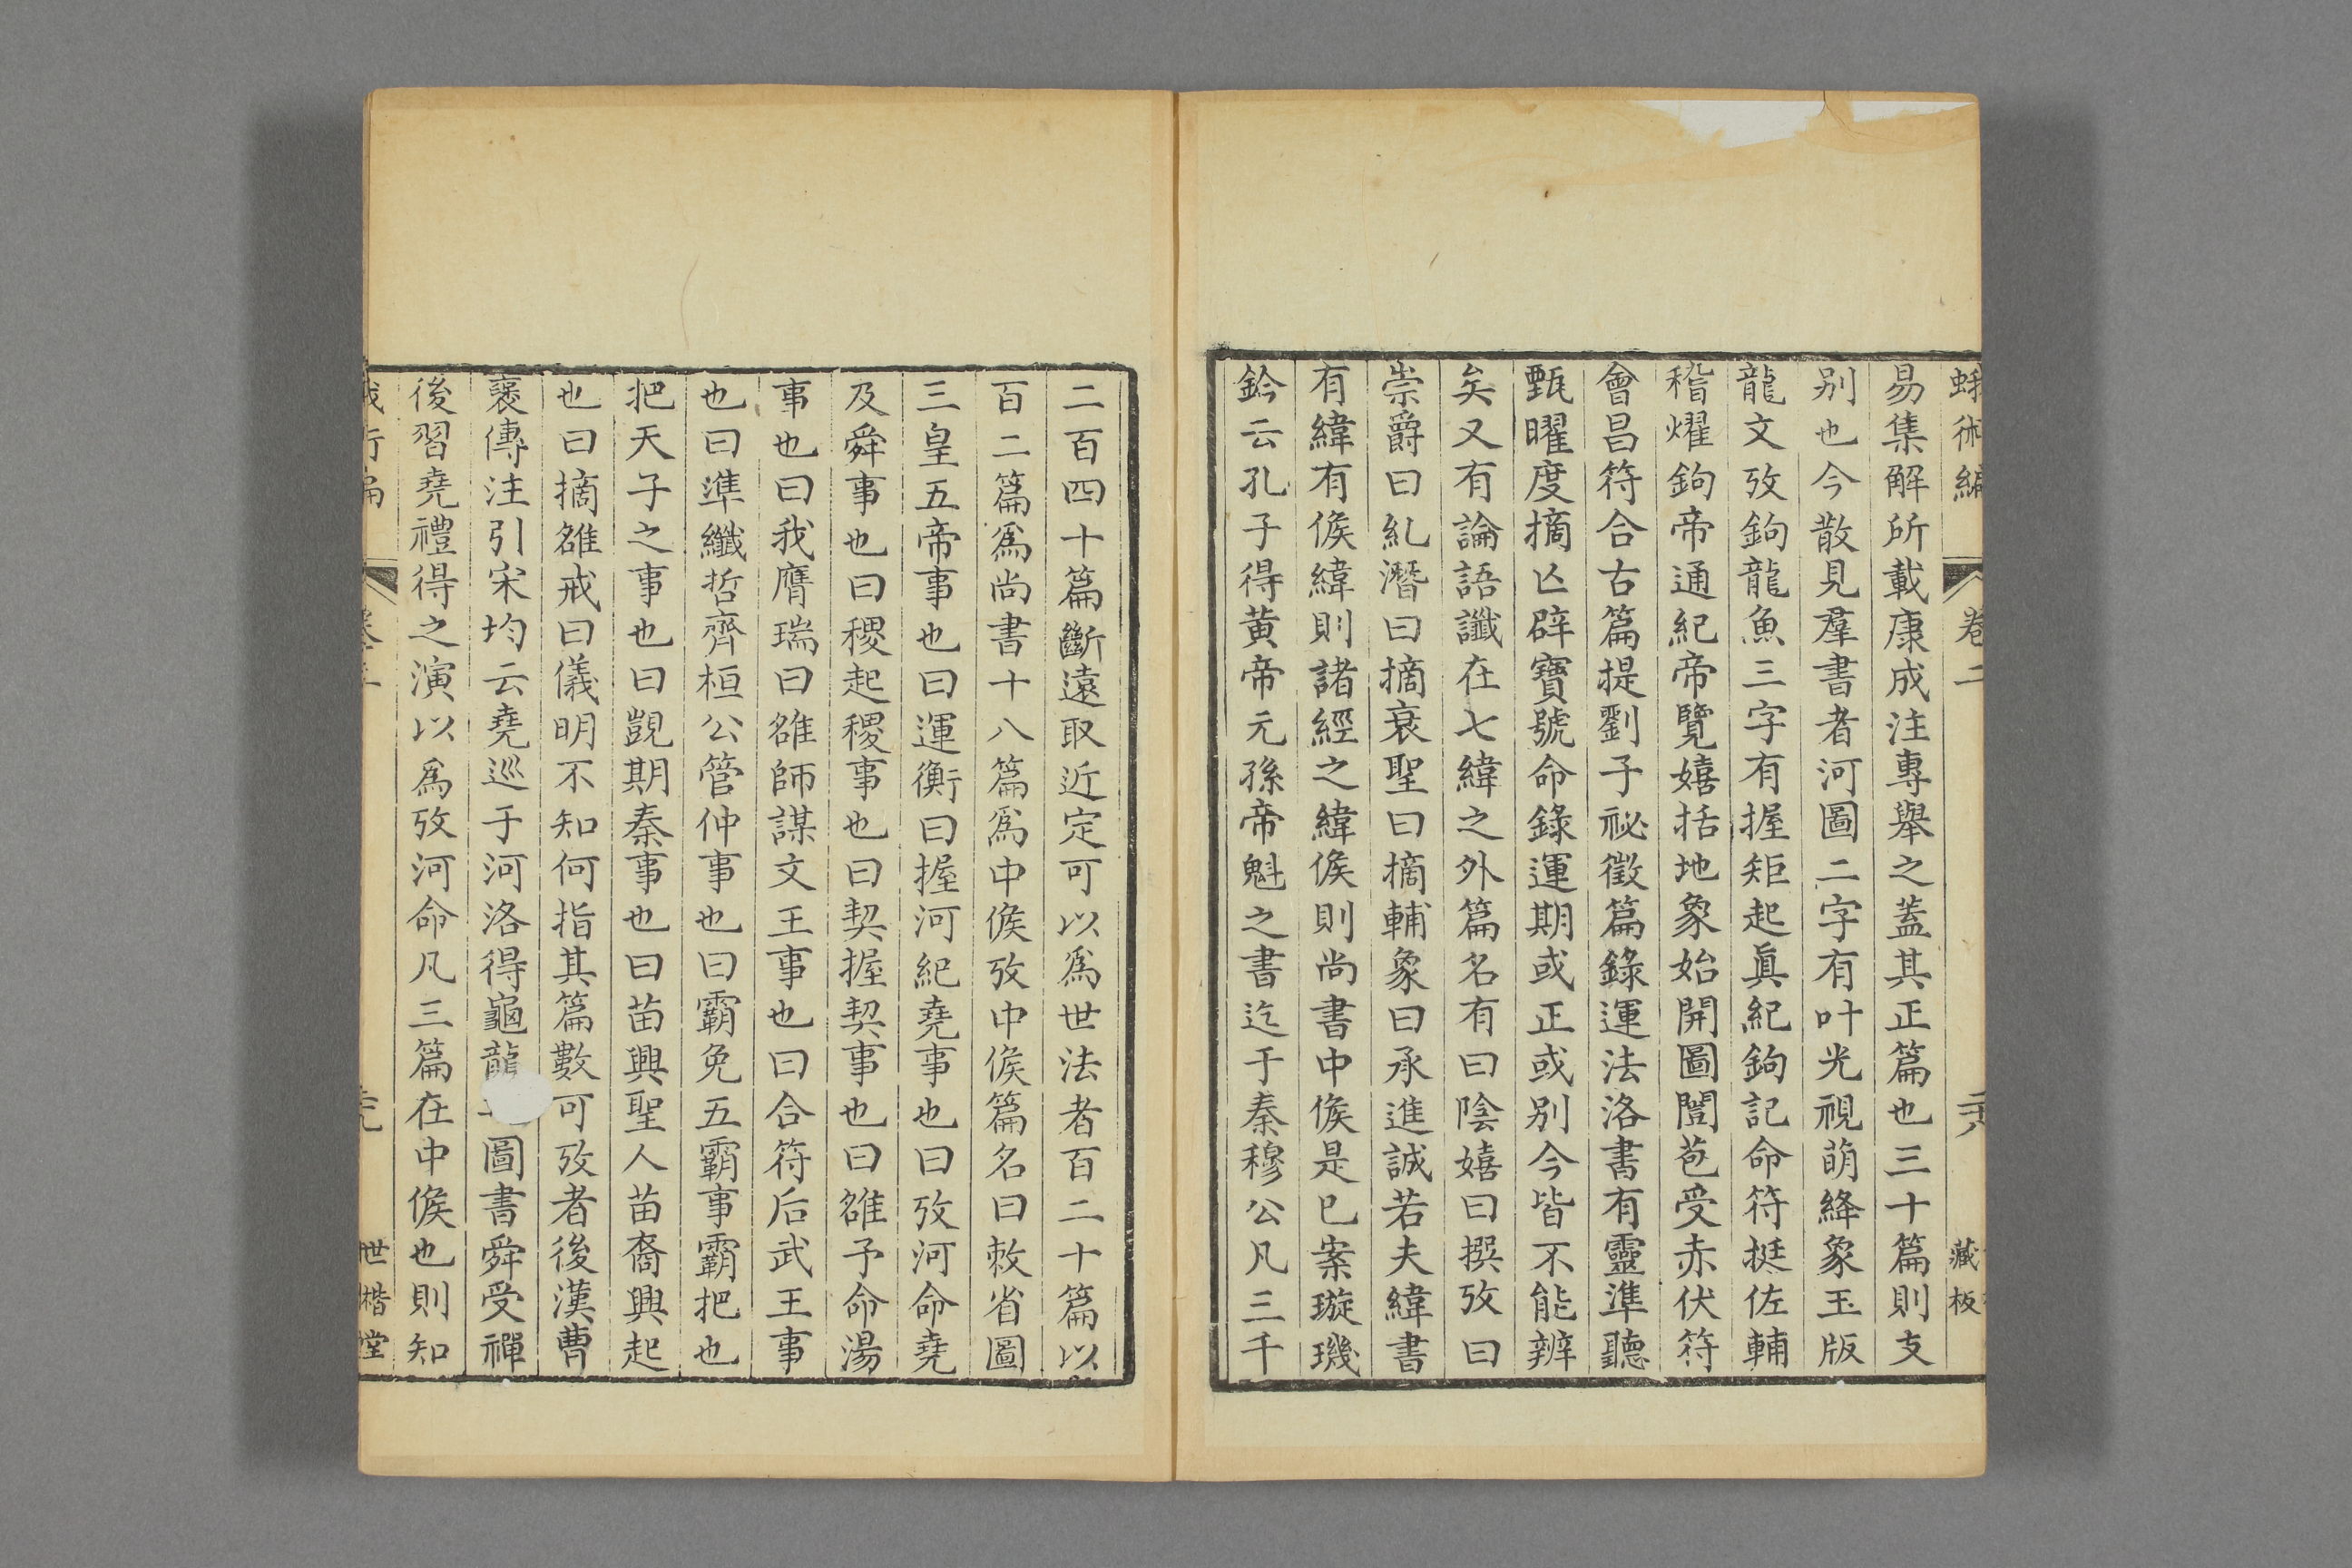 蛾術編 卷二 二十八 藏板
易集解所載康成注專舉之蓋其正篇也三十篇則支
别也今散見羣書者河圖二字有叶光視萌絳象玉版
龍文攷鉤龍魚三字有握矩起眞紀鉤記命符挺佐輔
稽燿鉤帝通紀帝覽嬉括地象始開圖闓苞受赤伏符
會昌符合古篇提劉子祕徵篇錄運法洛書有靈準聽
甄曜度摘亾辟寶號命錄運期或正或别今皆不能辨
矣又有論語讖在七緯之外篇名有曰陰嬉曰撰攷曰
崇爵曰糺潛曰摘衰聖曰摘輔象曰承進誠若夫緯書
有緯有候緯則諸經之緯候則尚書中候是巳案璇璣
鈐云孔子得黄帝元孫帝魁之書迄于秦穆公凡三千
二百四十篇斷遠取近定可以爲世法者百二十篇以
百二篇爲尚書十八篇爲中候攷中候篇名曰敕省圖
三皇五帝事也曰運衡曰握河紀堯事也曰攷河命堯
及舜事也曰稷起稷事也曰契握契事也曰雒予命湯
事也曰我膺瑞曰雒師謀文王事也曰合符后武王事
也曰準纖哲齊桓公管仲事也曰霸免五霸事霸把也
把天子之事也曰覬期秦事也曰苗興聖人苗裔興起
也曰摘雒戒曰儀明不知何指其篇數可攷者後漢曹
襃傳注引宋均云堯巡于河洛得龜龍圖書舜受禪
後習堯禮得之演以爲攷河命凡三篇在中候也則知
世楷堂